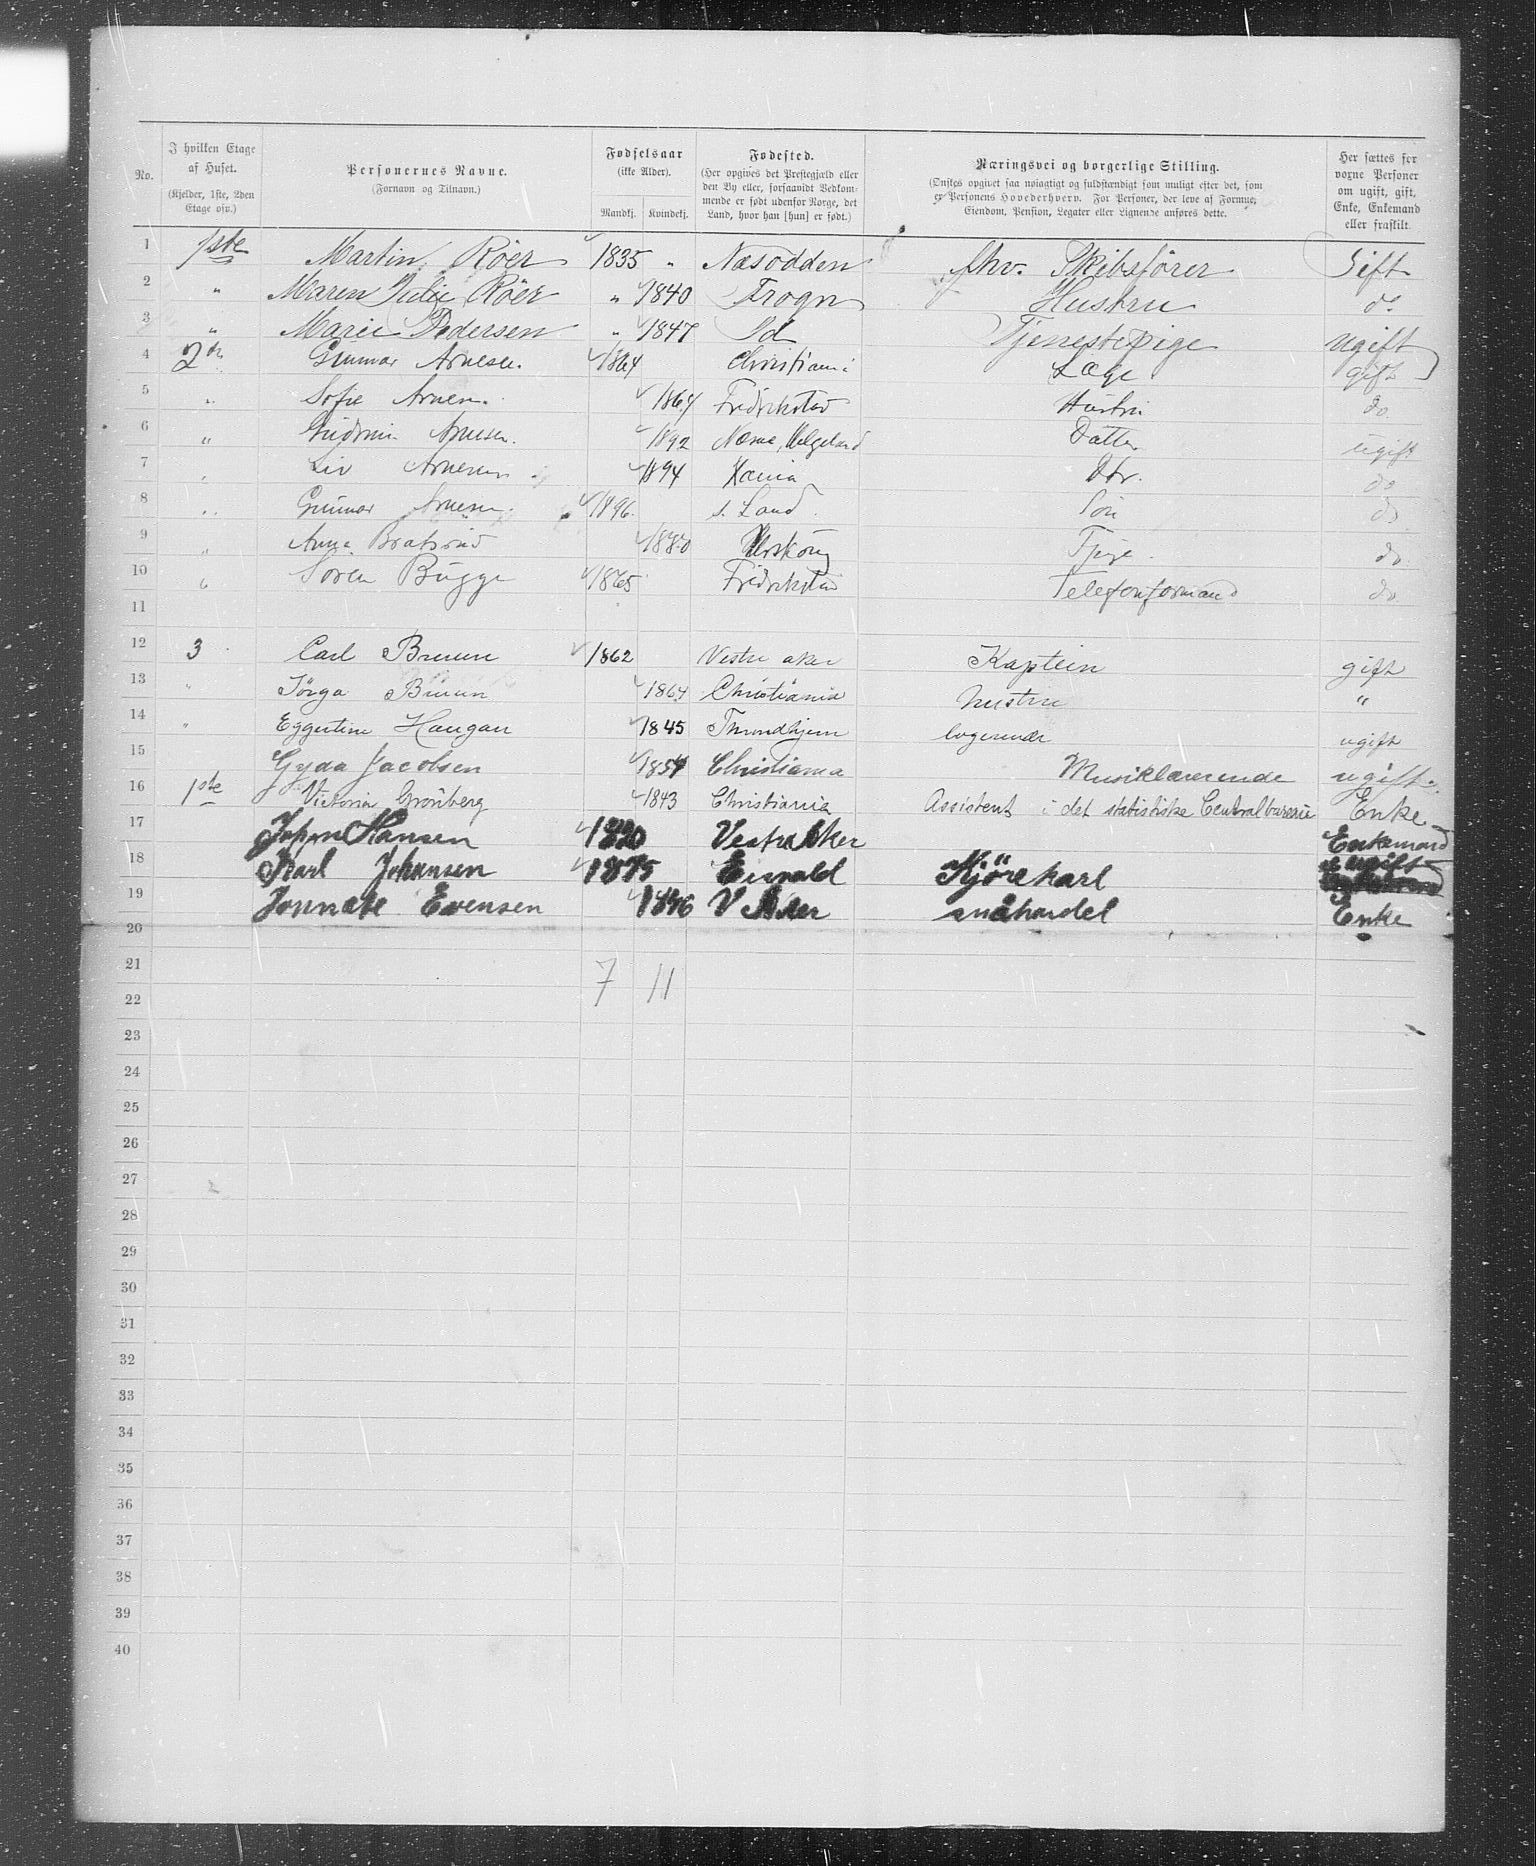 No. I hvilken Etage af Huset. (Kjelder, 1ste, 2den Etage osv.) Personernes Navne. (Fornavn og Tilnavn.) Fødselsaar (ikke Alder). Mandkj. Kvindekj. Fødested. (Her opgives det Præstegjæld eller den By eller, forsaavidt Vedkommende er født udenfor Norge, det Land, hvor han [hun] er født.) Næringsvei og borgerlige Stilling. (Ønskes opgivet saa nøiagtigt og fuldstændigt som muligt efter det, som er Personens Hovederhverv. For Personer, der leve af Formue, Eiendom, Pension, Legater eller Lignende anføres dette.) Her sættes for voxne Personer om ugift, gift, Enke, Enkemand eller fraskilt.
1 1ste Martin Röer 1835 " Næsodden fhv. Skibsförer Gift
2 " Maren Julie Röer " 1840 Frogn Hustru do
3 " Marie Pedersen " 1847 Id Tjenestepige ugift
4 2den Gunnar Arnesen. 1864 Christiania Læge gift
5 " Sofie Arnesen. 1864 Fredrikstad Hustru do
6 " Gudrun Arnesen. 1892 Næsne, Helgeland Datter ugift
7 " Liv Arnesen 1894 Xania Dtr. do
8 " Gunnar Arnesen. 1896. s. Land. Sön do
9 " Anna Bratsrud 1880 Tjpge. do
10 " Soren Bugge 1865 Fredrikstad Telefonformand do
11
12 3 Carl Bruun 1862 Vestre aker Kaptein gift
13 " Bruun 1864 Christiania hustru "
14 " Eggertine Haugan 1845 Throndhjem logerende ugift
15 Gyda Jacobsen 1854 Christiania Musiklærerinde ugift.
16 1ste Victoria Grönberg 1843 Christiania Assistent i det statistiske Centralbureau Enke
17 Hansen 1820 Vestre Aker Enkemand
18 Karl Johansen 1875 Kjörekarl ugift
19 Evensen 1846 V Aker småhandel Enke
20
21 7 11
22
23
24
25
26
27
28
29
30
31
32
33
34
35
36
37
38
39
40